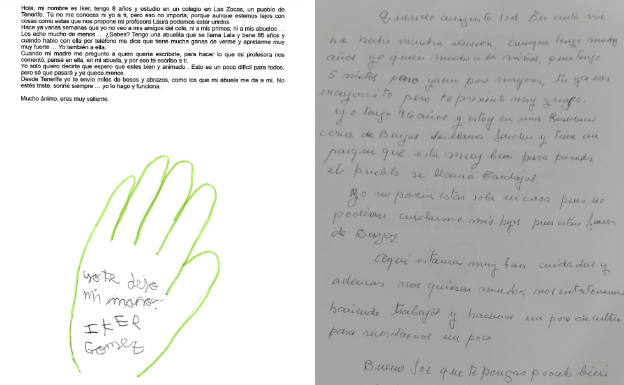 Hola, mi nombre es Iker, tengo 8 años y estudio en un colegio en Las Zocas, un pueblo de
Tenerife. Tú no me conoces ni yo a ti, pero eso no importa, porque aunque estemos lejos con
cosas como estas que nos propone mi profesora Laura podemos estar unidos.
Hace ya varias semanas que yo no veo a mis amigos del cole, ni a mis primos, ni a mis abuelos ...
Los echo mucho de menos ... ¿Sabes? Tengo una abuelita que se llama Lala y tiene 86 años y
cuando hablo con ella por teléfono me dice que tiene mucha ganas de verme y apretarme muy
muy fuerte ... Yo también a ella.
Cuando mi madre me preguntó a quién quería escribirle, para hacer lo que mi profesora nos
comentó, pensé en ella, en mi abuela, y por eso te escribo a ti.
Yo solo quiero decirte que espero que estes bien y animado . Esto es un poco difícil para todos,
pero sé que pasará y ya queda menos.
Desde Tenerife yo te envío miles de besos y abrazos, como los que mi abuela me da a mi. No
estés triste, sonríe siempre ... yo lo hago y funciona.
Mucho ánimo, eres muy valiente.
yo te dejo
mi mano:
IKER
Gomez
Querido amiguito soy En carta me
ha hecho mucha ilusión aunque tengo muchos
años yo quiero mucho a los niños, pues tengo
5 nietos pero ya un poco mayores, tu ya eres
mayorcito pero te presento muy
yo tengo 96 años y estoy en una Residencia
cerca de Burgos se llama y tiene un
parque que esta muy bien para pasear
el pueblo se llama Cardajal.
Yo no podia estar sola en casa pues no
podian cuidarme mis hijos pues estan fuera
de Burgos.
Aqui estamos muy bien cuidadas y
ademas nos quieren mucho, nos entretenemos
haciendo trabajos y hacemos un poco de
para un poco.
Bueno que te pongas pronto bien